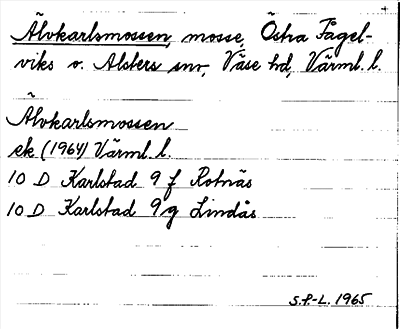 Älvkarlsmossen, mosse, Östra Fågel-
viks o. Alsters snr, Väse hd, Värml. l.
Älvkarlsmossen
ek (1964) Värml. l.
10 D Karlstad 9 f Rotnäs
10 D Karlstad 9 g Lindås
S.P.-L. 1965